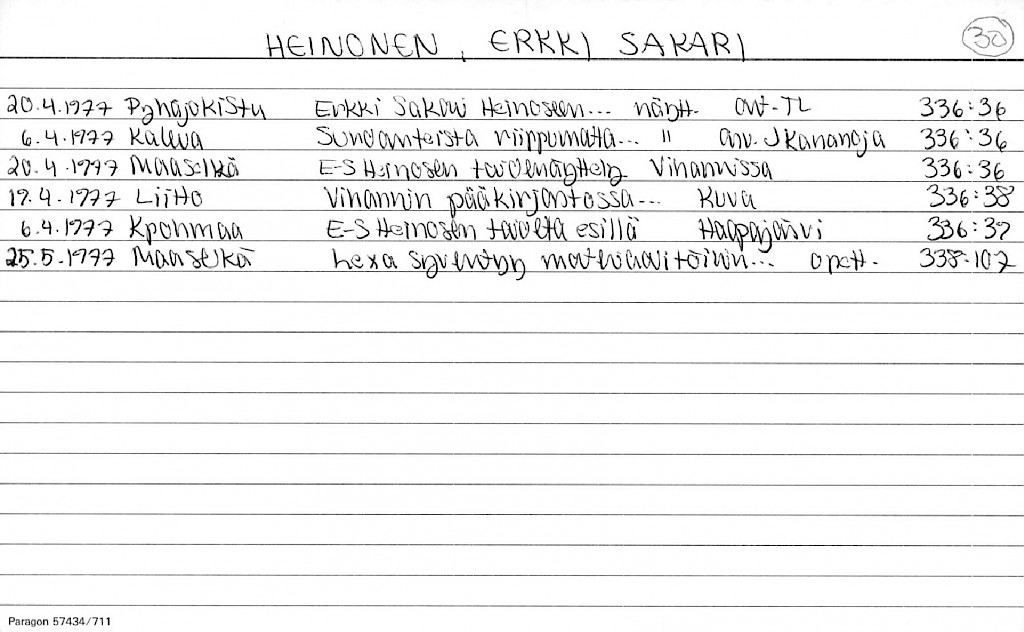 HEINONEN, ERKKI SAKARI 30
20.4.1977 Pyhäjokistu Erkki Sakari Heinoseen... näytt. art-TL 336:36
6.4.1977 Kaleva Suhdanteista riippumata... " arv. JKananoja 336:36
20.4.1977 Maaselkä E-S Heinosen taidenäyttely Vihannissa 336:36
19.4.1977 Liitto Vihannin pääkirjastossa... Kuva 336:38
6.4.1977 Kpohmaa E-S Heinosen taidetta esillä Haapajärvi 336:37
25.5.1977 Maaselkä syventyy materiaalitoihin... opett. 338:107
Paragon 57434/711